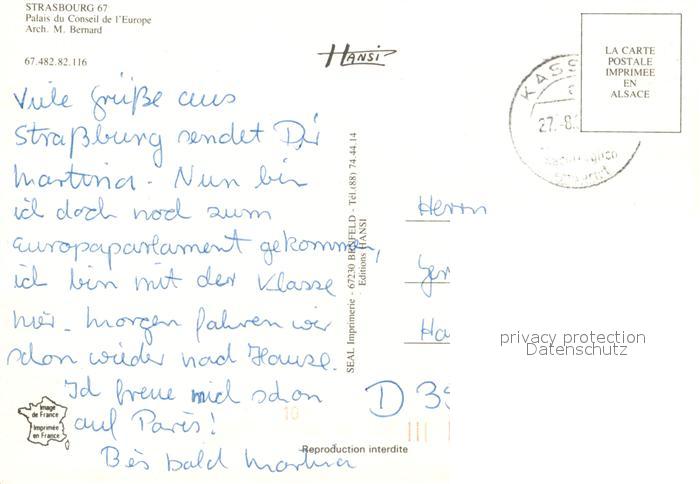 STRASBOURG 67
Palais du Conseil de l'Europe
Arch. M. Bernard
67.482.82.116
HANSI
LA CARTE
POSTALE
IMPRIMEE
EN
ALSACE
KASS
27.-8.
Viele Grüße aus
Straßburg sendet Dir
Martina. Nun bin
ich doch noch zum
Europaparlament gekommen,
ich bin mit der Klasse
hier. Morgen fahren wir
schon wieder nach Hause.
Ich freue mich schon
auf Paris!
Bis bald Martina
SEAL Imprimerie - 67230 BENFELD - Tél. (88) 74.44.14
Editions HANSI
Herrn
Ha
D 35
privacy protection
Datenschutz
Image
de France
Imprimée
en France
10
Reproduction interdite